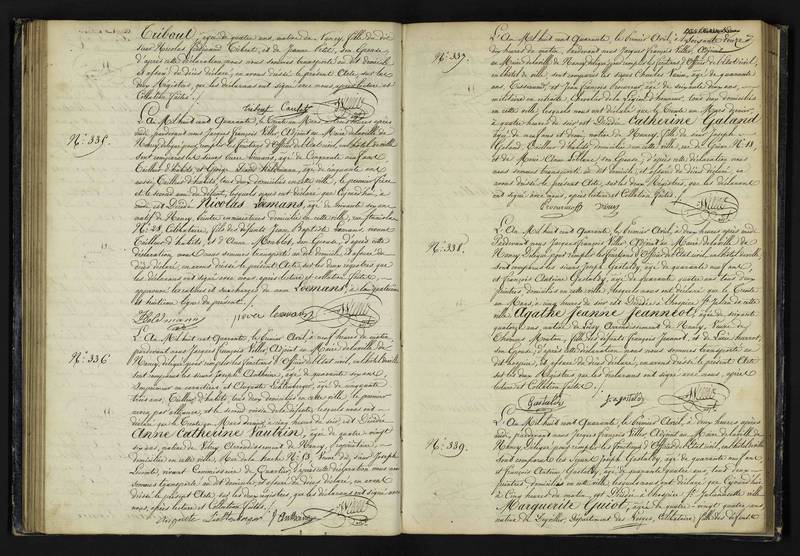 Tribout, âgée de quatre ans, native de Nancy, fille de dé
sieur Nicolas Ferdinand Tribout, et de Jeanne Petit, son Epouse,
d'après cette déclaration nous nous sommes transporté au dit domicile
et assuré du décès déclaré, en avons dressé le présent Acte, sur les
deux Registres, que les déclarants ont signé avec nous après lecture et
Collation faites.
N.° 335.
L'An Mil huit cent Quarante, le Trente un Mars à trois heures après
midi, pardevant nous Jacques François Viller, Adjoint au Maire de la ville de
Nancy délégué pour remplir les fonctions d'Officier de l'état civil, en l'hôtel de ville
sont comparus les sieurs
Tailleur d'habits et George
aussi Tailleur d'habits, tous deux domiciliés en cette ville, le premier frère
et le second ami du défunt, lesquels nous ont déclaré que
midi, est Décédé Nicolas Loemans, âgé de soixante six ans
natif de Nancy, domicilié en cette ville, rue Stanislas
N.° 28, Célibataire, fils des défunts Jean Baptiste Loemans, vivant
Tailleur d'habits, et d'Anne son Epouse, d'après cette
déclaration, nous nous sommes transporté au dit domicile, et assuré du
décès déclaré, en avons dressé le présent Acte, sur les deux registres que
les déclarants ont signé avec nous, après lecture et collation faites
approuvé la rature et surcharge du nom Loemans, à la quatrième
et huitième ligne du présent.
N.° 336
L'An Mil huit cent Quarante, le Premier Avril, à neuf heures du matin
Pardevant nous Jacques François Viller, Adjoint au Maire de la ville de
Nancy, délégué pour remplir les fonctions d'Officier de l'état civil, en l'hôtel de ville
sont comparus les sieurs Joseph Anthoine, âgé de quarante six ans
Imprimeur en caractères et Auguste Lichtenberger, âgé de cinquante
trois ans, Tailleur d'habits, tous deux domiciliés en cette ville, le premier
neveu par alliance, et le second voisin de la défunte, lesquels nous ont
déclaré que le Trente un Mars dernier, à cinq heures du soir, est Décédée
Anne Catherine Vautrin, âgée de quatre vingt
six ans, native de Vitrey, Arrondissement de Nancy, Propriétaire,
domiciliée en cette ville, rue de la hache N.° 13, Veuve du sieur Joseph
Lecomte, vivant Commissaire de Quartier, d'après cette déclaration nous nous
sommes transporté au dit domicile, et assuré du décès déclaré, en avons
dressé le présent Acte, sur les deux registres, que les déclarants ont signé avec
nous, après lecture et Collation faites.
Auguste Lichtenberger J Anthoine
N.° 337.
L'An Mil huit cent Quarante, le Premier Avril, à
dix heures du matin, Pardevant nous Jacques François Viller, Adjoint
au Maire de la ville de Nancy délégué pour remplir les fonctions d'Officier de l'état civil,
en l'hôtel de ville, sont comparus les sieurs Charles âgé de quarante
ans, Tisserand, et Jean François âgé de soixante deux ans,
militaire en retraite, Chevalier de la Légion d'honneur, tous deux domiciliés
en cette ville, lesquels nous ont déclaré que le Trente un Mars dernier,
à quatre heures du soir, est Décédée Catherine Galand
âgée de neuf ans et demi, native de Nancy, fille du sieur Joseph
Galand, Tailleur d'habits, domiciliée en cette ville, rue de Grève N.° 18,
et de Marie Anne son Epouse, d'après cette déclaration nous
nous sommes transporté au dit domicile, et assuré du décès déclaré, en
avons dressé le présent Acte, sur les deux Registres, que les déclarants
ont signé avec nous, après lecture et Collation faites.
N.° 338.
L'An Mil huit cent Quarante, le Premier Avril, à deux heures après midi
Pardevant nous Jacques François Viller, Adjoint au Maire de la ville de
Nancy, délégué pour remplir les fonctions d'Officier de l'état civil, en l'hôtel de ville,
sont comparus les sieurs Joseph Gastaldy, âgé de quarante neuf ans
et François Antoine Gastaldy, âgé de quarante quatre ans, tous deux
peintres domiciliés en cette ville, lesquels nous ont déclaré, que le Trente
un Mars, à cinq heures du soir, est Décédée à l'hospice S.t Julien de cette
ville Agathe Jeanne Jeanneot, âgée de soixante
quatorze ans, native de Arrondissement de Nancy, Veuve de
Thomas Mouton, fille des défunts François Jeannot, et de Lucie
son Epouse, d'après cette déclaration nous nous sommes transporté au
dit hospice, et assuré du décès déclaré, en avons dressé le présent Acte
sur les deux Registres que les déclarants ont signé avec nous, après
lecture et Collation faites.
Gastaldy
N.° 339.
L'An Mil huit cent Quarante, le Premier Avril, à deux heures après
midi, pardevant nous Jacques François Viller, Adjoint au Maire de la ville de
Nancy, délégué pour remplir les fonctions d'Officier de l'Etat civil, en l'hôtel de ville
sont comparus les sieurs Joseph Gastaldy, âgé de quarante neuf ans
et François Antoine Gastaldy, âgé de quarante quatre ans, tous deux
peintres domiciliés en cette ville, lesquels nous ont déclaré que
à Cinq heures du matin, est Décédée à l'hospice S.t Julien de cette ville
Marguerite Guiot, âgée de quatre-vingt quatre ans
native de Département des Vosges, Célibataire, fille des défunts